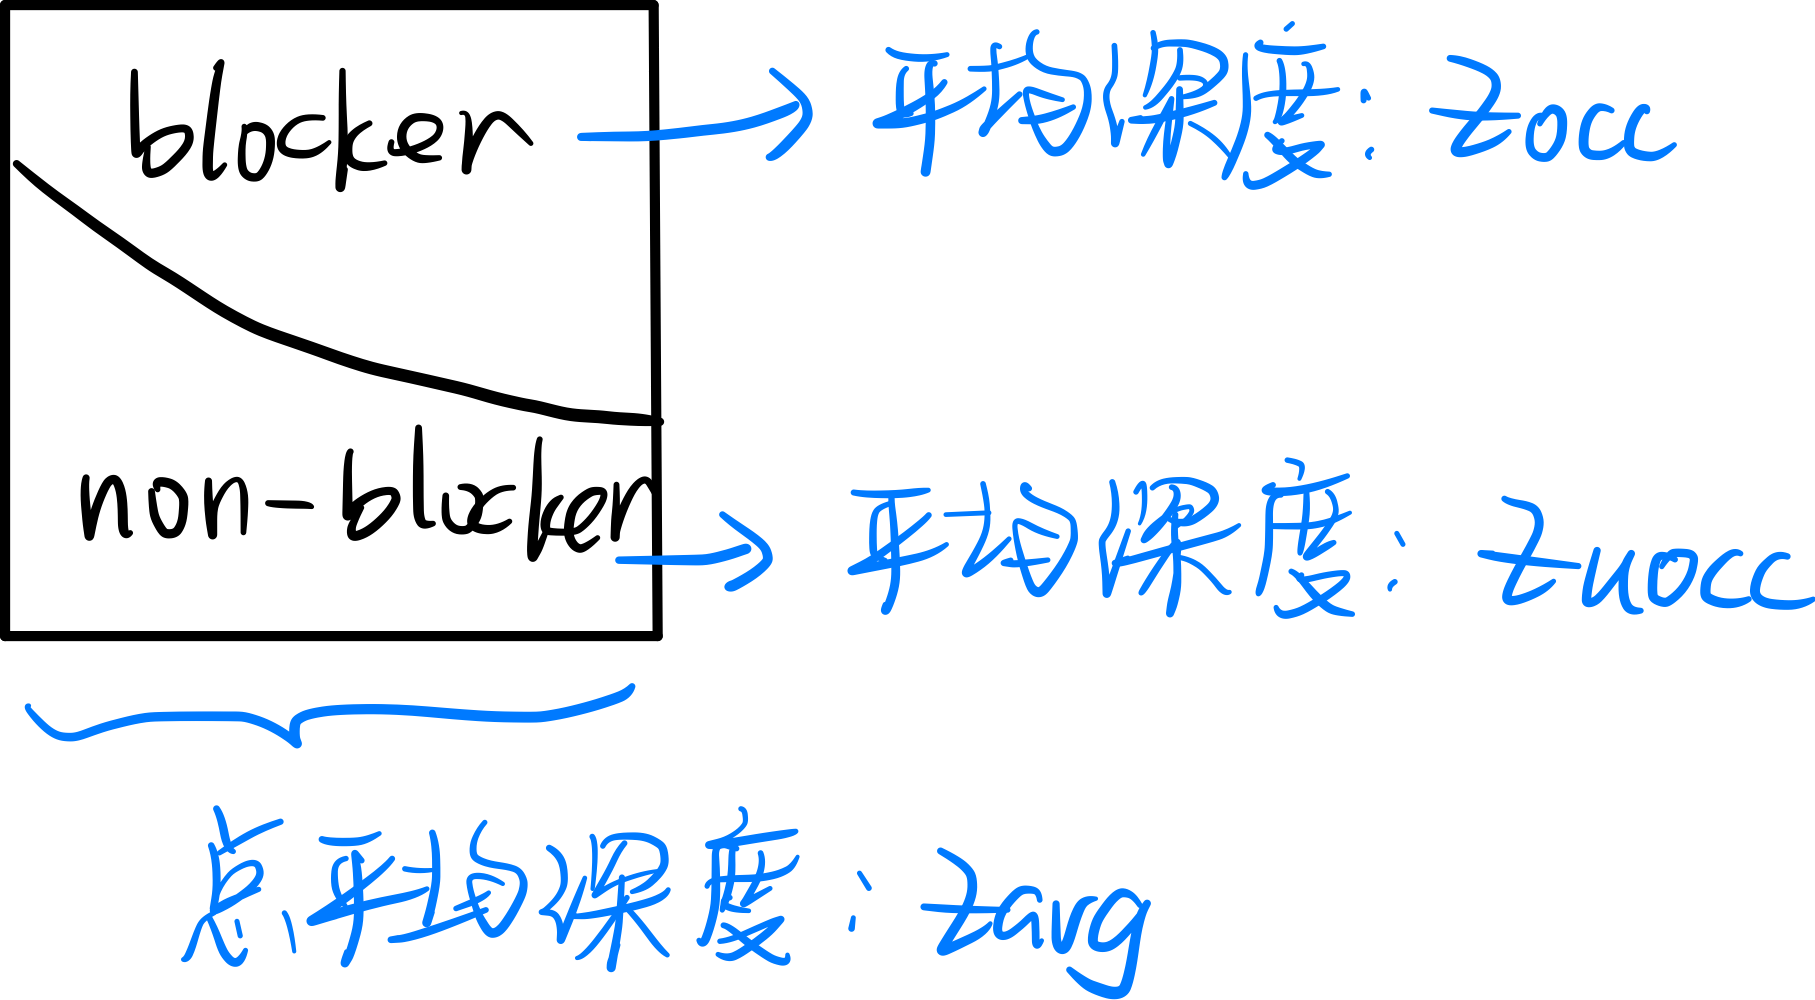 blocker
平均深度: Zocc
non-blocker
平均深度: Zuocc
总平均深度: Zavg